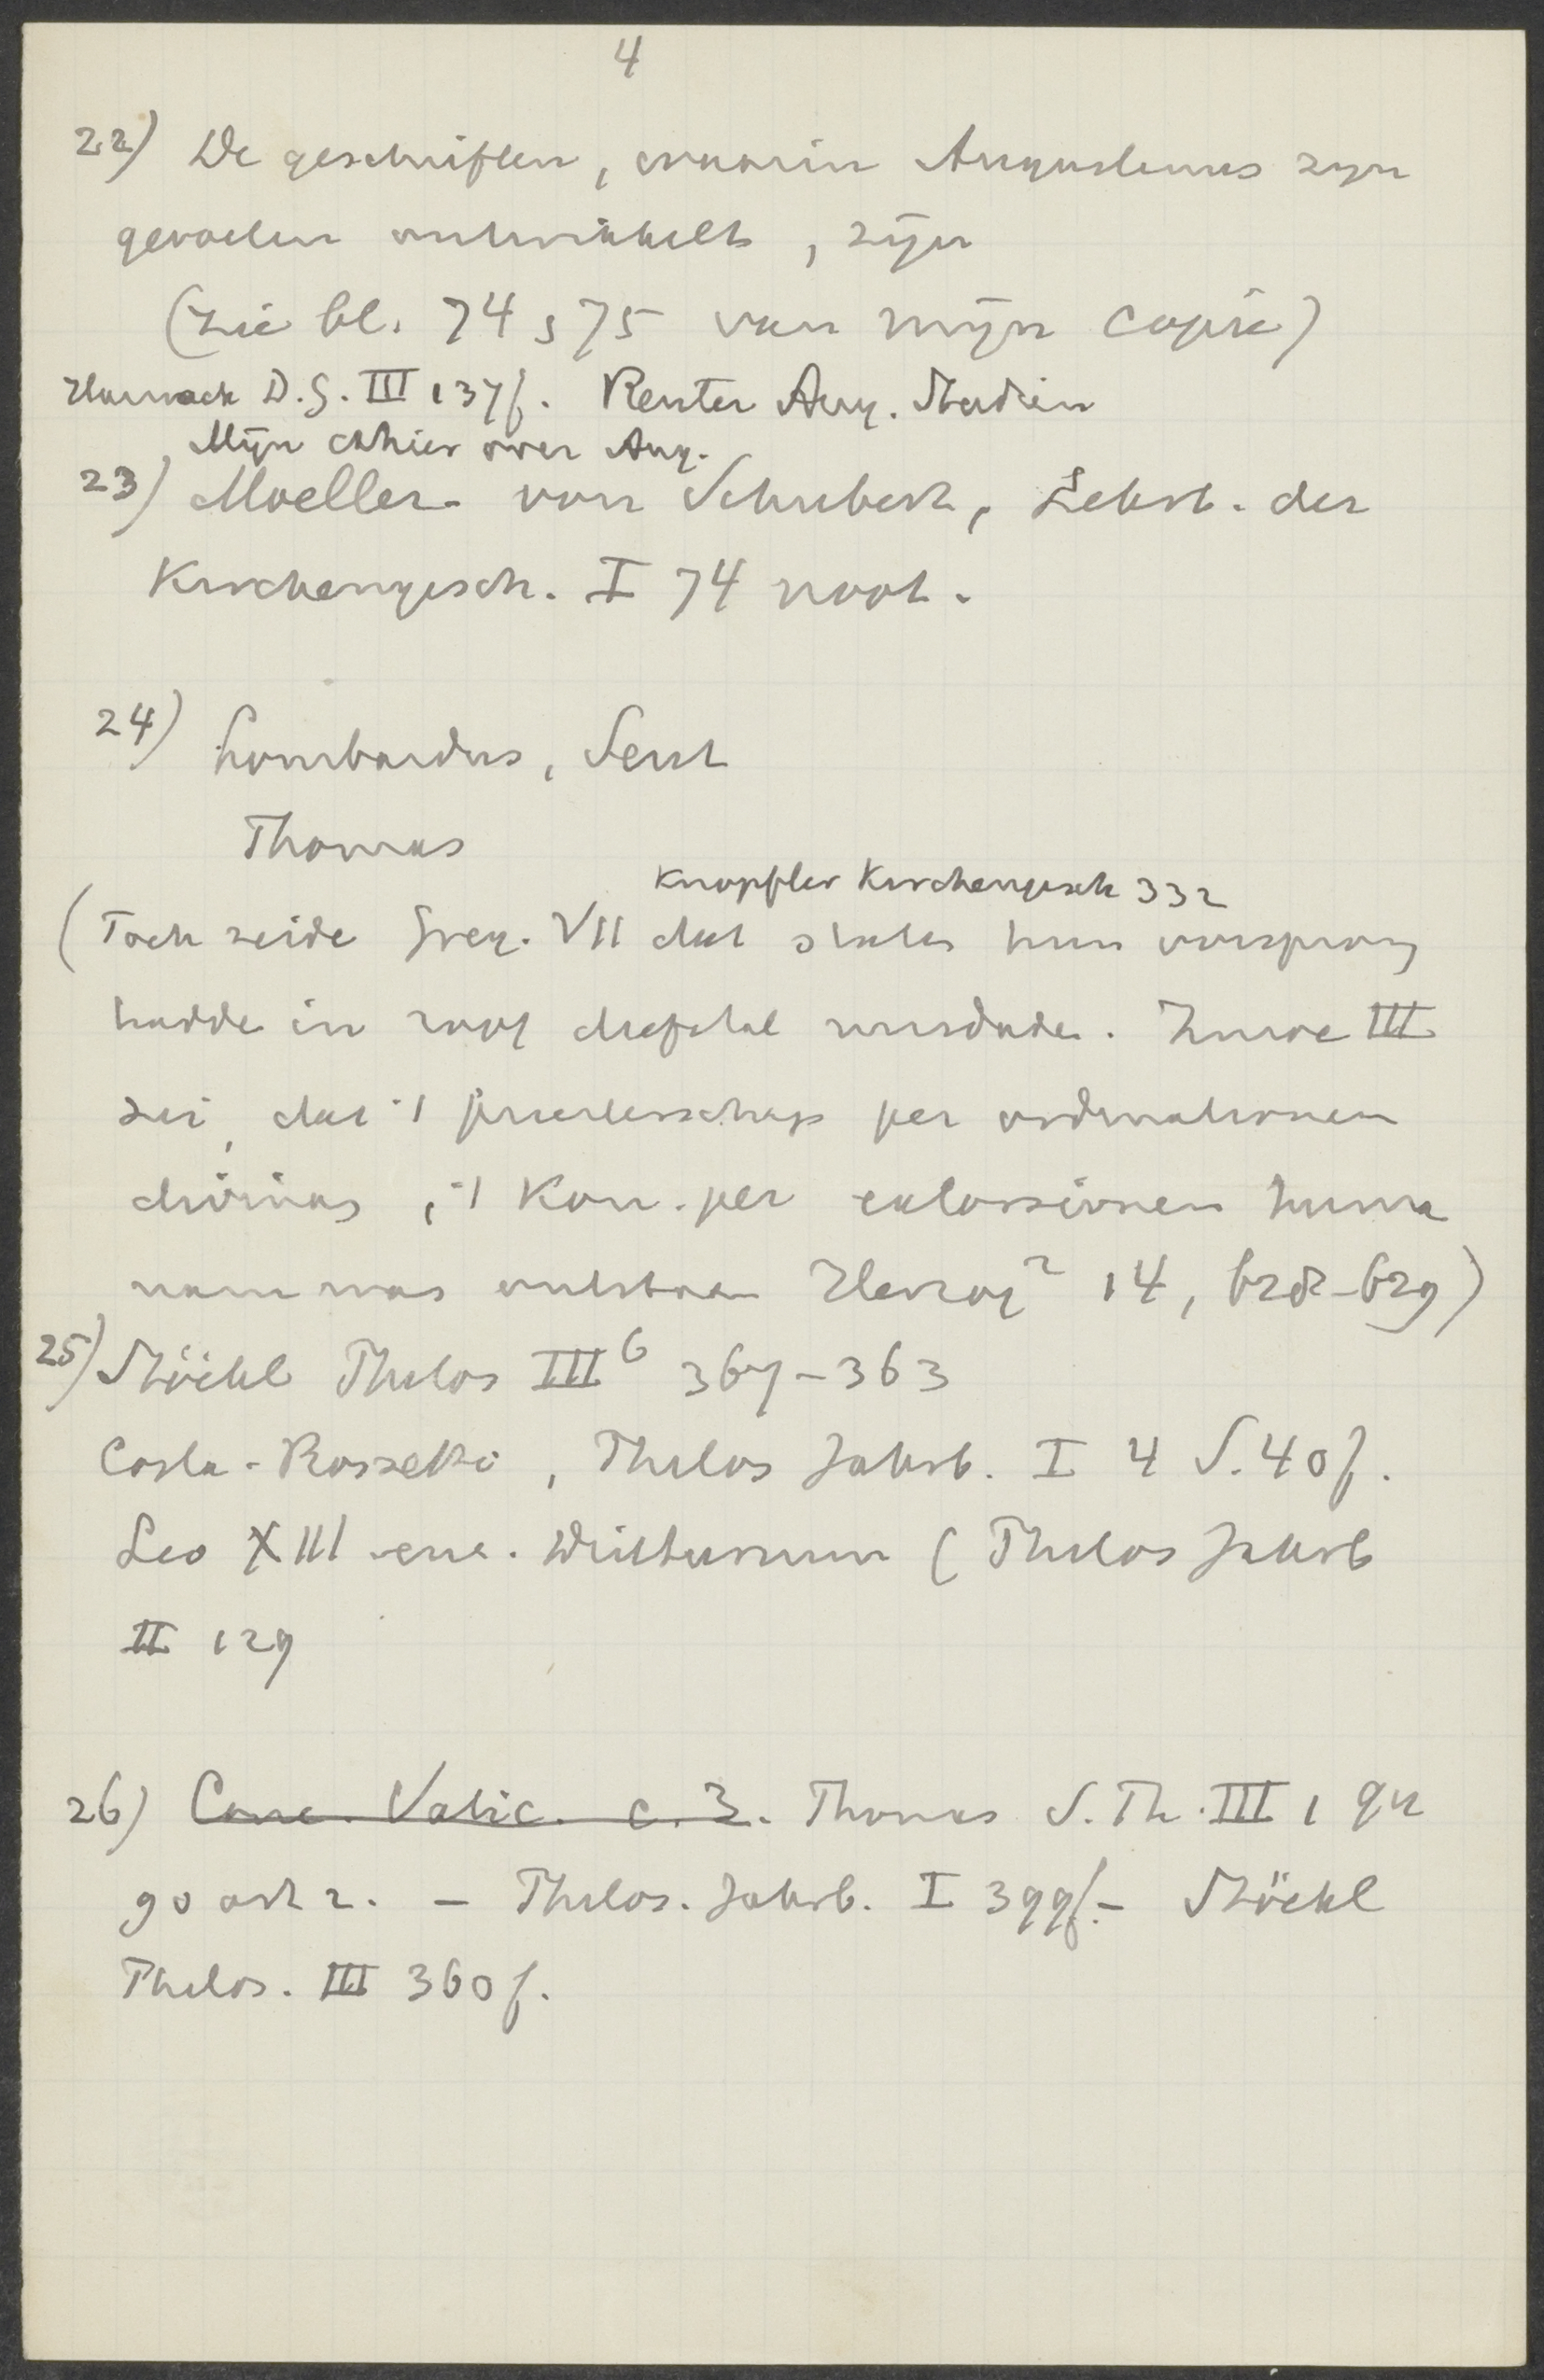 4
22) De geschriften, waarin Augustinus zyn
gevoelen ontwikkelt, zijn
(zie bl. 74, 75 van mijn copie)
Harnack D.G. III 137f. Reuter Aug. Studien
Mijn cahier over Aug.
23) Moeller - von Schubert, Lehrb. der
Kirchengesch. I 74 noot.
24) Lombardus, Sent
Thomas
Knöpfler Kirchengesch 332
(Toch zeide Greg. VII dat staten hun oorsprong
hadde in roof diefstal misdade. Innoc III
zei, dat 't priesterschap per ordinationem
divinas, 't Kon. per extorsionem huma
nam was ontstaan Herzog² 14, 628-629)
25) Stöckl Philos III⁶ 367-363
Costa-Rossetti, Philos Jahrb. I 4 S. 40f.
Leo XIII enc. Diuturnum (Philos Jahrb
II 129
26) Conc. Vatic. c. 3. Thomas S. Th. III 1 qu
90 art 2. - Philos. Jahrb. I 399f. - Stöckl
Philos. III 360f.